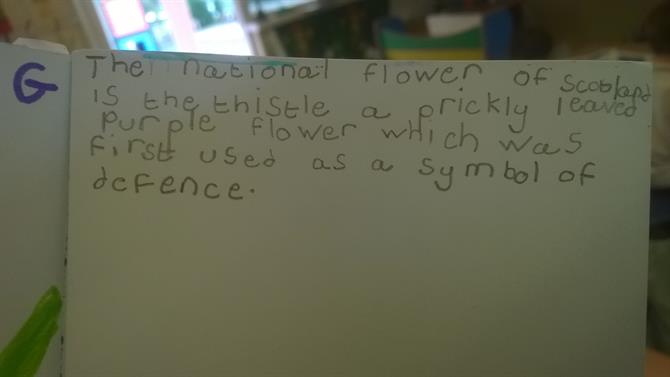 G
The national flower of Scotland
is the thistle a prickly leaved
purple flower which was
first used as a symbol of
defence.